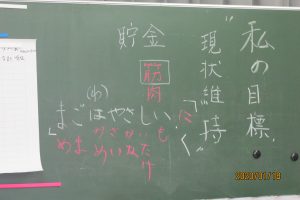 私の目標
“現状維持”
貯金
筋肉
(わ)
「まごはやさしい、にく」
め
ま
かめ
さい
かな
いたけ
も